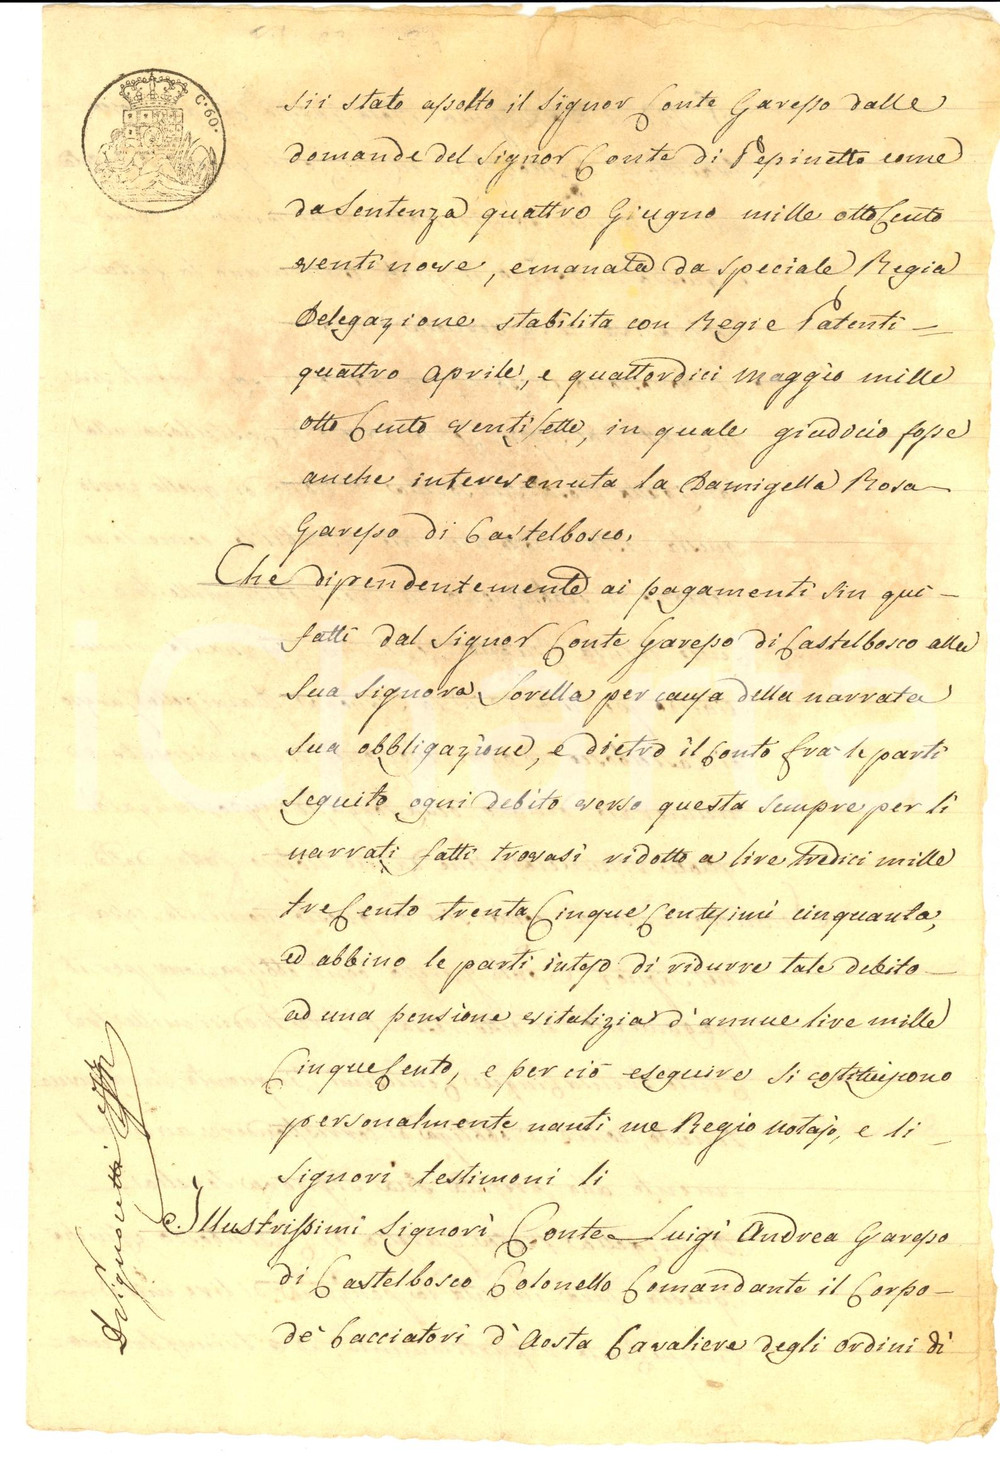 C. 60.
sii stato assolto il Signor Conte Garesso dalle
domande del Signor Conte di Pepinetto come
da Sentenza quattro Giugno mille otto Cento
venti nove, emanata da speciale Regia
Delegazione stabilita con Regie Patenti
quattro Aprile, e quattordici Maggio mille
otto Cento venti sette, in quale giudicio fosse
anche intervenuta la Damigella Rosa
Garesso di Castelbosco.
Che dipendentemente ai pagamenti sin qui
fatti dal Signor Conte Garesso di Castelbosco alla
Sua Signora Sorella per causa della narrata
sua obbligazione, e dietro il Conto frà le parti
seguito ogni debito verso questa sempre per li
narrati fatti trovasi ridotto a lire tredici mille
tre Cento trenta Cinque Centesimi cinquanta,
ed abbino le parti inteso di ridurre tale debito
ad una pensione vitalizia d'annue lire mille
Cinque Cento, e per ciò eseguire si costituiscono
personalmente nanti me Regio Notajo, e li
Signori testimoni li
Illustrissimi Signori Conte Luigi Andrea Garesso
di Castelbosco Colonello Comandante il Corpo
de' Cacciatori d'Aosta Cavaliere degli ordini di